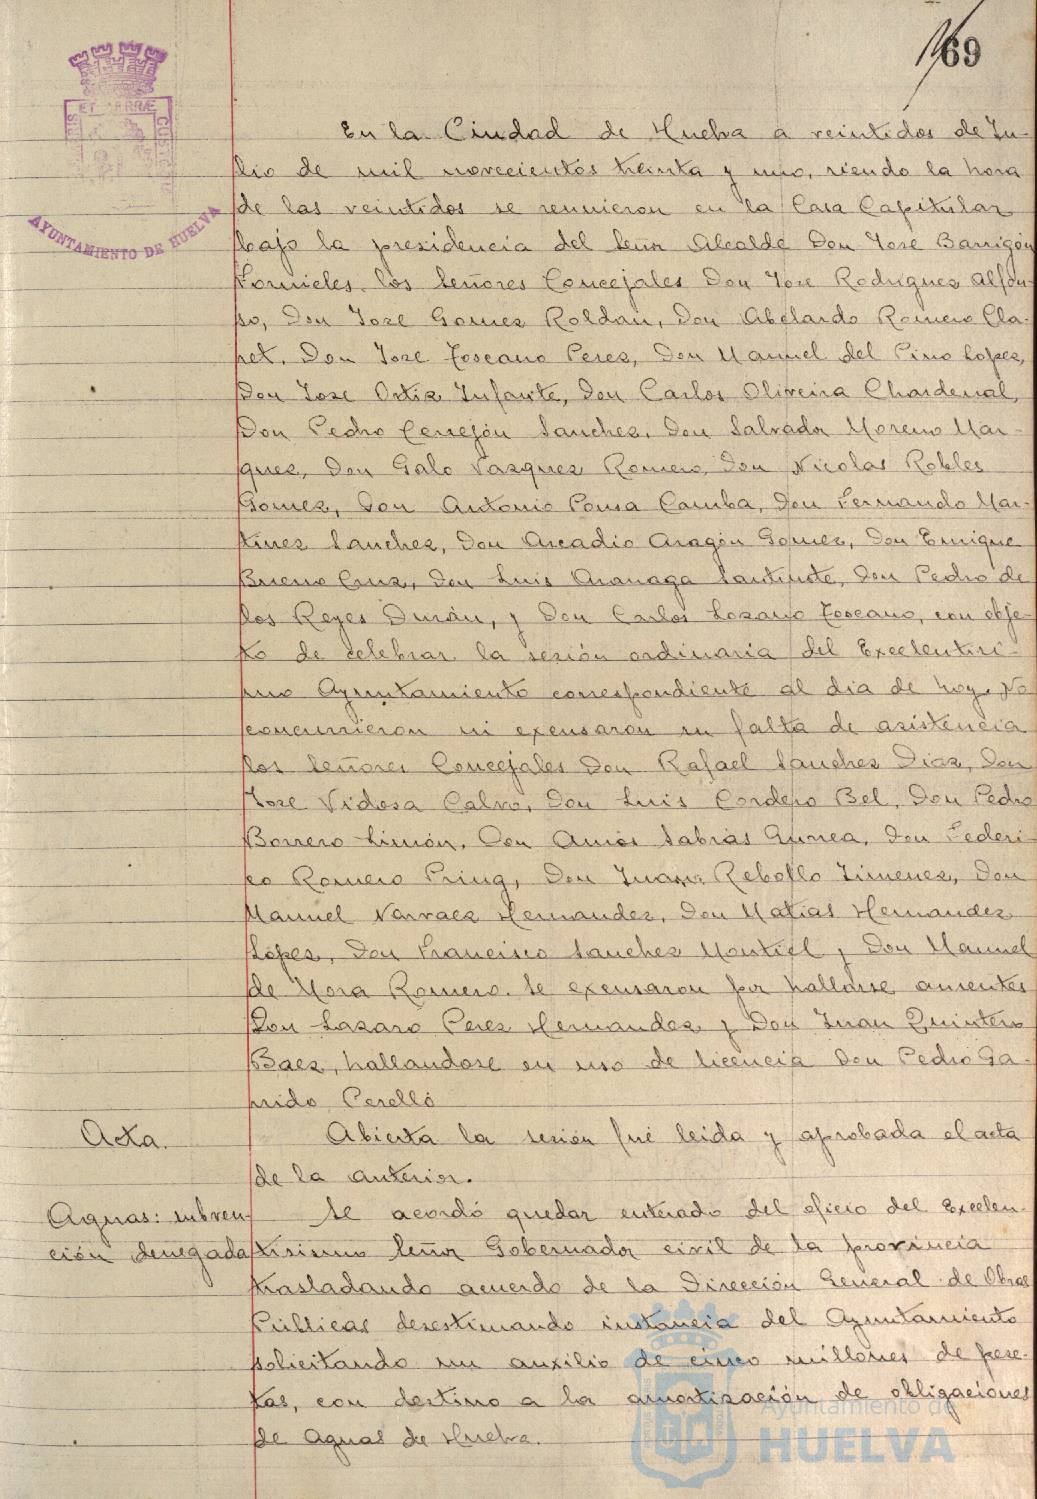 169
ET TERRÆ
CUSTODIA
AYUNTAMIENTO DE HUELVA
En la Ciudad de Huelva a veintidos de Ju-
lio de mil novecientos treinta y uno, siendo la hora
de las veintidos se reunieron en la Casa Capitular
bajo la presidencia del Señor Alcalde Don Jose Barrigón
Fornieles, los Señores Concejales Don Jose Rodriguez Alfon-
so, Don Jose Gomez Roldan, Don Abelardo Romero Cla-
ret, Don Jose Toscano Perez, Don Manuel del Pino Lopez,
Don Jose Ortiz Infante, Don Carlos Oliveira Chardenal,
Don Pedro Cerrejón Sanchez, Don Salvador Moreno Mar-
quez, Don Galo Vazquez Romero, Don Nicolas Robles
Gomez, Don Antonio Pousa Camba, Don Fernando Mar-
tinez Sanchez, Don Arcadio Aragón Gomez, Don Enrique
Bueno Cruz, Don Luis Aranaga Santinste, Don Pedro de
los Reyes Durán, y Don Carlos Lozano Toscano, con obje-
to de celebrar la sesión ordinaria del Excelentisi-
mo Ayuntamiento correspondiente al dia de hoy. No
concurrieron ni excusaron su falta de asistencia
los Señores Concejales Don Rafael Sanchez Diaz, Don
Jose Vidosa Calvo, Don Luis Cordero Bel, Don Pedro
Borrero Limón, Don Amós Sabrás Gurrea, Don Federi-
co Romero Pring, Don Juan Rebollo Jimenez, Don
Manuel Narvaez Hernandez, Don Matias Hernandez
López, Don Francisco Sanchez Montiel y Don Manuel
de Mora Romero. Se excusaron por hallarse ausentes
Don Lazaro Perez Hernandez y Don Juan Quintero
Baez, hallandose en uso de licencia Don Pedro Ga-
rrido Perelló
Acta.
Abierta la sesión fué leida y aprobada el acta
de la anterior.
Aguas: subven-
ción denegada
Se acordó quedar enterado del oficio del Excelen-
tisimo Señor Gobernador civil de la provincia
trasladando acuerdo de la Dirección General de Obras
Públicas desestimando instancia del Ayuntamiento
solicitando un auxilio de cinco millones de pese-
tas, con destino a la amortización de obligaciones
de Aguas de Huelva.
Ayuntamiento de
HUELVA